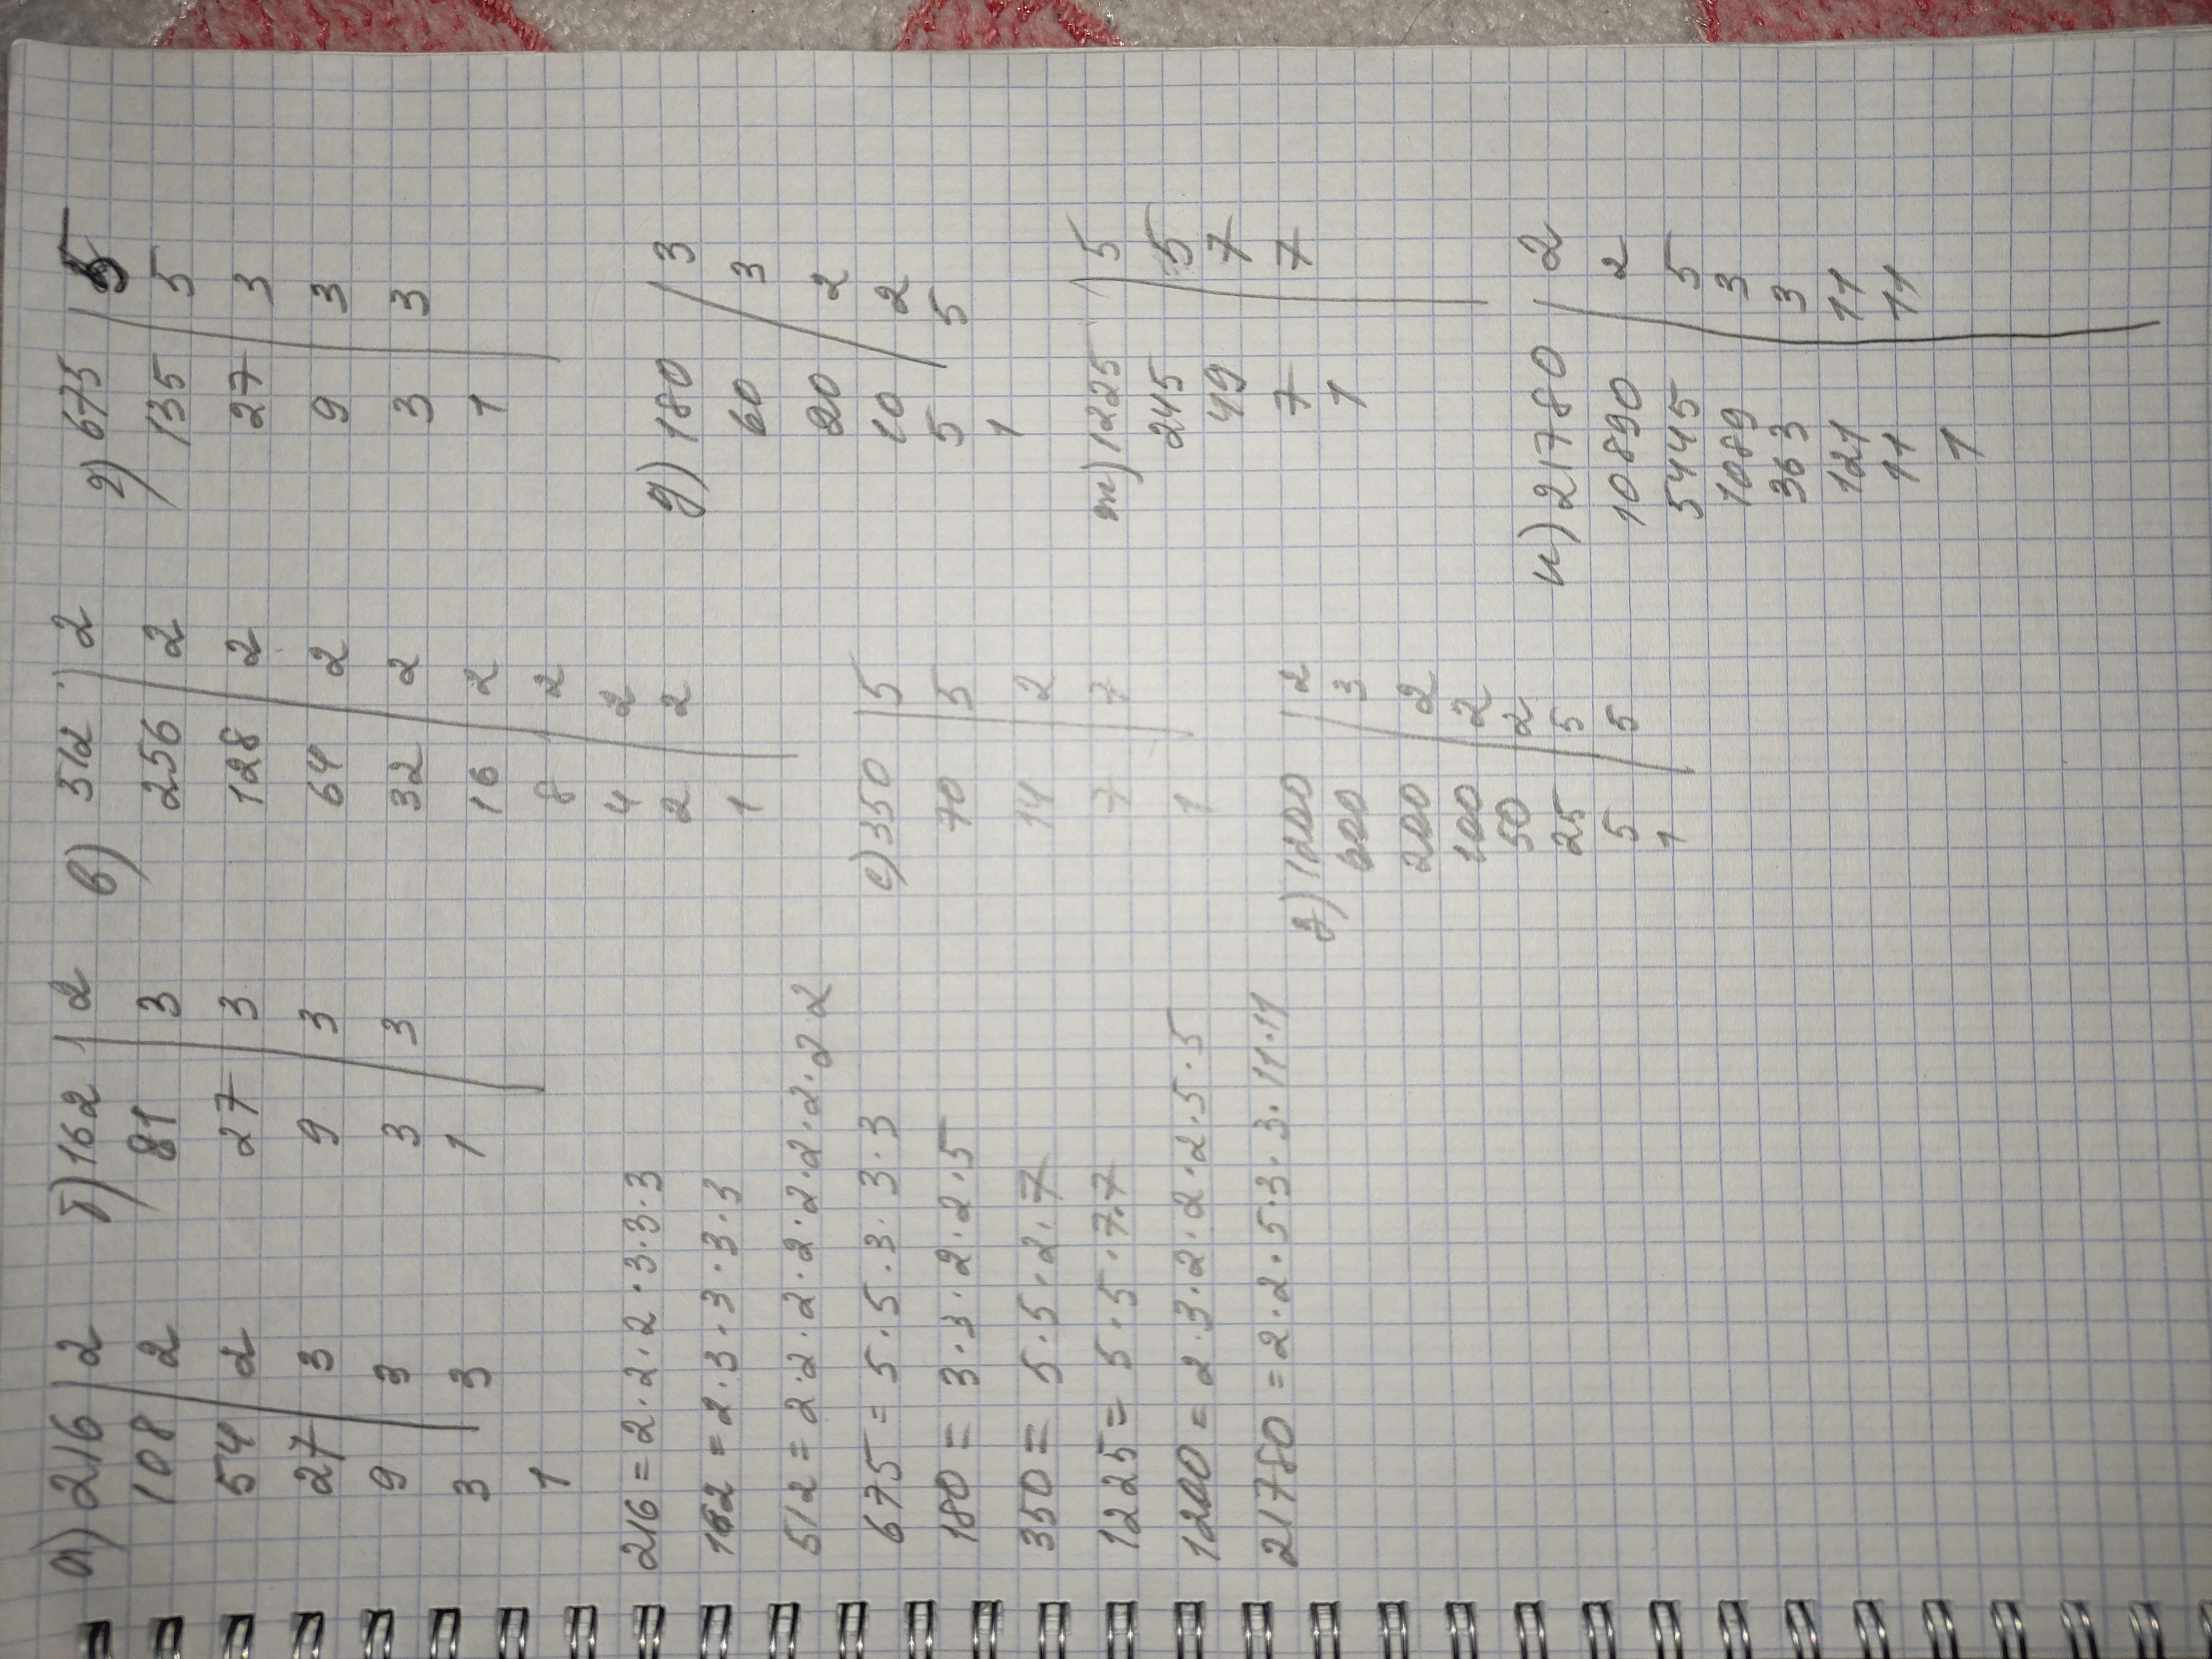 а) 216 | 2
108 | 2
54 | 2
27 | 3
9 | 3
3 | 3
1
б) 162 | 2
81 | 3
27 | 3
9 | 3
3 | 3
1
в) 512 | 2
256 | 2
128 | 2
64 | 2
32 | 2
16 | 2
8 | 2
4 | 2
2 | 2
1
г) 675 | 5
135 | 5
27 | 3
9 | 3
3 | 3
1
216 = 2 · 2 · 2 · 3 · 3 · 3
162 = 2 · 3 · 3 · 3 · 3
512 = 2 · 2 · 2 · 2 · 2 · 2 · 2 · 2 · 2
675 = 5 · 5 · 3 · 3 · 3
180 = 3 · 3 · 2 · 2 · 5
350 = 5 · 5 · 2 · 7
1225 = 5 · 5 · 7 · 7
1200 = 2 · 3 · 2 · 2 · 2 · 5 · 5
21780 = 2 · 2 · 5 · 3 · 3 · 11 · 11
д) 180 | 3
60 | 3
20 | 2
10 | 2
5 | 5
1
е) 350 | 5
70 | 5
14 | 2
7 | 7
1
ж) 1225 | 5
245 | 5
49 | 7
7 | 7
1
з) 1200 | 2
600 | 3
200 | 2
100 | 2
50 | 2
25 | 5
5 | 5
1
и) 21780 | 2
10890 | 2
5445 | 5
1089 | 3
363 | 3
121 | 11
11 | 11
1